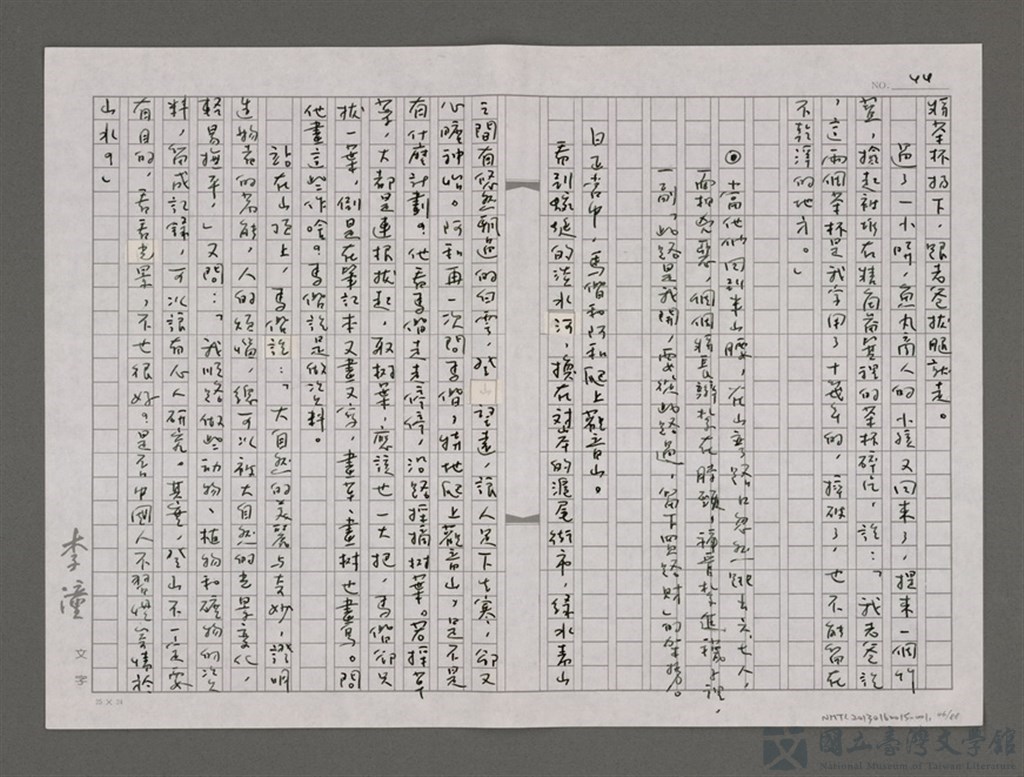 NO. 44
精茶杯扔下，跟著爸拔腿就走。
過了一小時，魚丸商人的小孩又回來了，提來一個竹
簍，撿起被扔在精
的茶杯碎片，說：「我老爸說
，這兩個茶杯是我家用了十幾年的，摔破了，也不能留在
不乾淨的地方。」
◎當他們回到半山腰，在山
路口忽然跳出六、七人，
面相兇惡，個個將長辮紮在脖頸，
一副「此路是我開，要從此路過，留下買路財」的
日正當中，馬偕和阿和爬上觀音山。
看到蜿蜒的淡水河，換在對岸的滬尾街市，綠水青山
之間有悠然飄過的白雲，登山望遠，讓人足下生寒，卻又
心曠神怡。阿和再一次問馬偕，特地爬上觀音山，是不是
有什麼計劃？他看馬偕走走停停，沿路採摘樹葉。若採草
藥，大都是連根拔起，取樹葉，應該也一大把，馬偕卻只
拔一葉，倒是在筆記本又畫又寫，畫草、畫樹也畫鳥。問
他畫這些作啥？馬偕說是做資料。
站在山頂上，馬偕說：「大自然的美麗與奇妙，證明
造物者的萬能，人的煩惱，總可以被大自然的光景變化，
輕易撫平，」又問：「我順路做些動物、植物和礦物的資
料，留成記錄，可以讓有心人研究。其實，登山不一定要
有目的，看看光景，不也很好？是否中國人不習慣寄情於
山水？」
李潼
文字
25×24
NMTL20130160015-001,
國立臺灣文學館
National Museum of Taiwan Literature